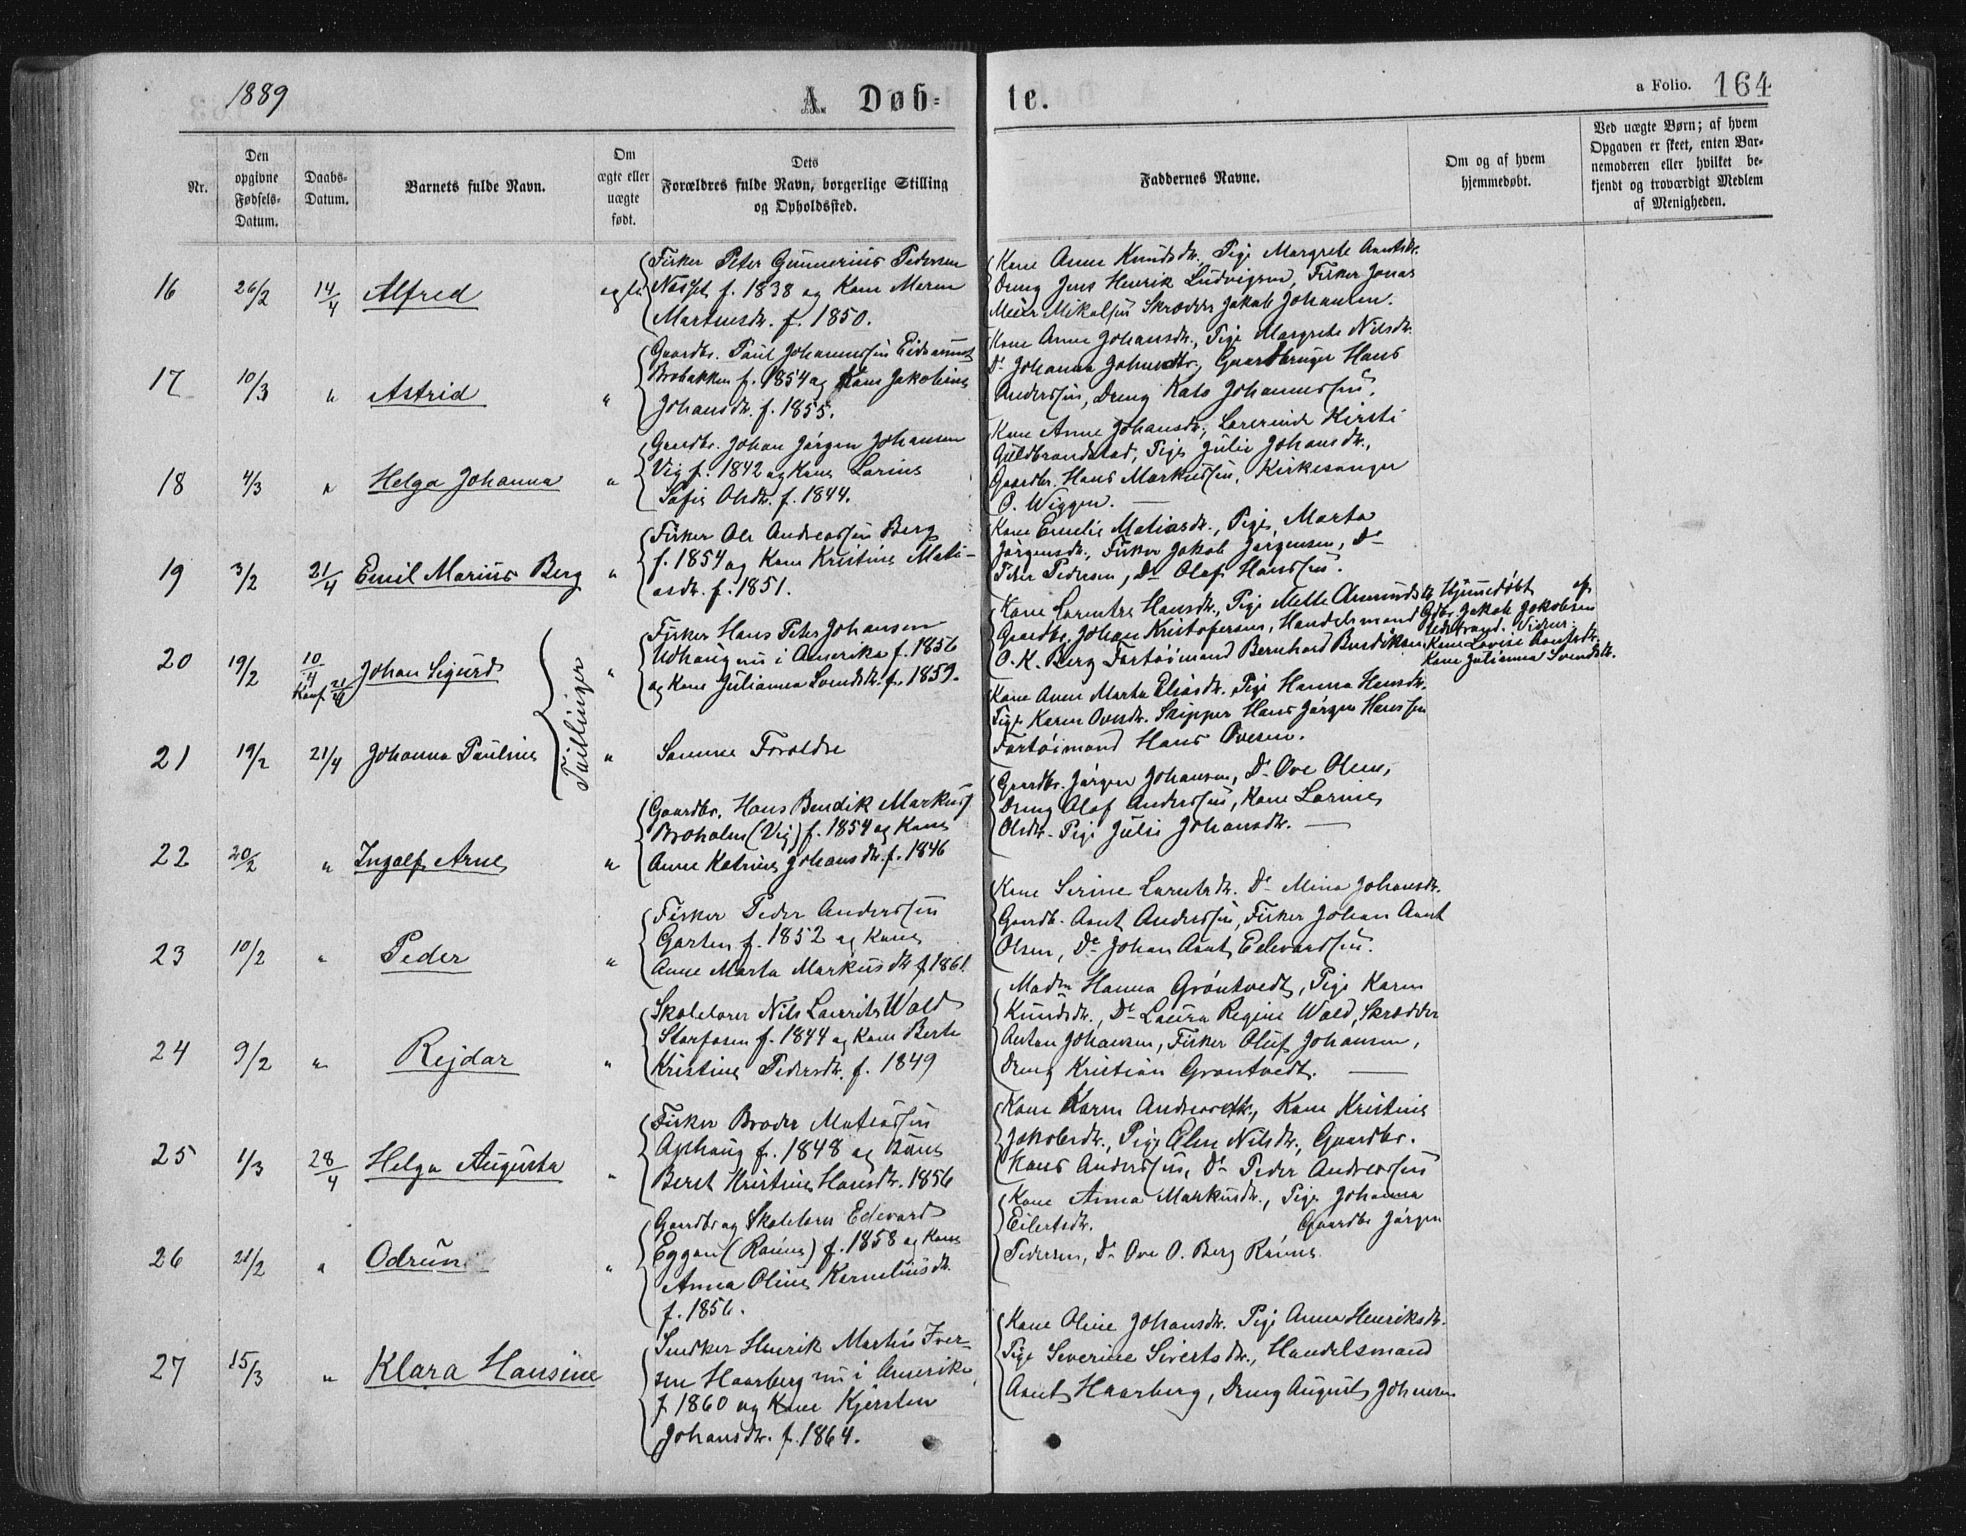 1889
A Døb=
te.
a Folio. 164
Nr.
Den opgivne Fødsels-Datum.
Daabs-Datum.
Barnets fulde Navn.
Om ægte eller uægte født.
Dets Forældres fulde Navn, borgerlige Stilling og Opholdssted.
Faddernes Navne.
Om og af hvem hjemmedøbt.
Ved uægte Børn; af hvem Opgaven er skeet, enten Barnemoderen eller hvilket bekjendt og troværdigt Medlem af Menigheden.
16 26/2 14/4 Alfred ægte
Fisker Peter Gunnerius Pedersen
f. 1838 og Kone Maren
Martinsdtr. f. 1850.
Kone Anne Knudsdtr., Pige Margrete Arntsdtr.
Dreng Jens Henrik Ludvigsen, Fisker Jonas
Meier Mikalsen Skrædder Jakob Johansen.
17 10/3 " Astrid "
Gaardbr. Paul Johannessen Eidsaunet
Brobakken f. 1854 og Kone Jakobine
Johansdtr. f. 1855.
Kone Anne Johansdtr., Pige Margrete Nilsdtr.
Do Johanna Johnsdtr., Gaardbruger Hans
Anderssen, Dreng Kato Johannessen.
18 4/3 " Helga Johanna "
Gaardbr. Johan Jørgen Johansen
Vig f. 1842 og Kone Larine
Sofie Olsdtr. f. 1844.
Kone Anne Johansdtr., Lærerinde Kirsti
Guldbrandstad, Pige Julie Johansdtr.,
Gaardbr. Hans Markussen, Kirkesanger
O. Wiggen. —
19 3/2 21/4 Emil Marius Berg "
Fisker Ole Andreassen Berg
f. 1854 og Kone Kristine Mati-
asdtr. f. 1851.
Kone Emelie Matiasdtr., Pige Marta
Jørgensdtr., Fisker Jakob Jørgensen, Do
Peter Pedersen, Do Olaf Hanssen.
20 19/2 10/4 Konf. 21/4 Johan Sigurd "
Tvillinger
Fisker Hans Peter Johansen
Udhaug nu i Amerika f. 1856
og Kone Julianna Svendsdtr. f. 1859.
Kone Lorentse Hansdtr., Pige Mette Amundsdtr.
Gaardbr. Johan Kristofersen, Handelsmand
O. K. Berg Fartøimand Bernhard Bendiksen
Hjemmedøbt af
Gdbr. Jakob Jakobsen
Udstrand. Vidner:
Kone Lovise Arntsdtr.
Kone Julianna Svendsdtr.
21 19/2 21/4 Johanna Pauline "
Samme Forældre
Kone Anne Marta Eliasdtr. Pige Hanna Hansdtr.
Pige Karen Ovesdtr. Skipper Hans Jørgen Hanssen
Fartøimand Hans Ovesen.
22 20/2 " Ingolf Arne "
Gaardbr. Hans Bendik Markuss.
Broholm (Vig) f. 1854 og Kone
Anne Katrine Johansdtr. f. 1846
Gaardbr. Jørgen Johansen, Do Ove Olsen,
Dreng Olaf Anderssen, Kone Larine
Olsdtr. Pige Julie Johansdtr. —
23 10/2 " Peder "
Fisker Peder Anderssen
Garten f. 1852 og Kone
Anne Marta Markusdtr. f. 1861
Kone Serine Larntsdtr. Do Mina Johansdtr.
Gaardb. Arnt Anderssen, Fisker Johan Arnt
Olsen, Do Johan Arnt Edevardsen.
24 9/2 " Rejdar "
Skolelærer Nils Laurits Wold
Storfosen f. 1844 og Kone Berte
Kristine Pedersdtr. f. 1849
Madm Hanna Grøntvedt, Pige Karen
Knudsdtr., Do Laura Regine Wold, Skrædder
Anton Johansen, Fisker Oluf Johansen,
Dreng Kristian Grøntvedt. —
25 1/3 28/4 Helga Augusta "
Fisker Broder Matiassen
Ophaug f. 1848 og Kone
Beret Kristine Hansdtr. 1856
Kone Karen Andreasdtr., Kone Kristine
Jakobsdtr., Pige Elen Nilsdtr., Gaardbr.
Hans Anderssen, Do Peder Andreassen
26 21/2 " Odrun "
Gaardbr og Skolelærer Edevard
Eggan (Raanes) f. 1858 og Kone
Anna Oline Korneliusdtr.
f. 1856.
Kone Anna Markusdtr., Pige Johanna
Eilertsdtr. Gaardbr Jørgen
Pedersen, Do Ove O. Berg Raanes
27 15/3 " Klara Hansine
Snedker Henrik Martin Iver-
sen Haarberg nu i Amerika,
f. 1860 og Kone Kjersten
Johansdtr. f. 1864.
Kone Oline Johansdtr. Pige Anna Henriksdtr.
Pige Severine Sivertsdtr., Handelsmand
Arnt Haarberg, Dreng August Johansen